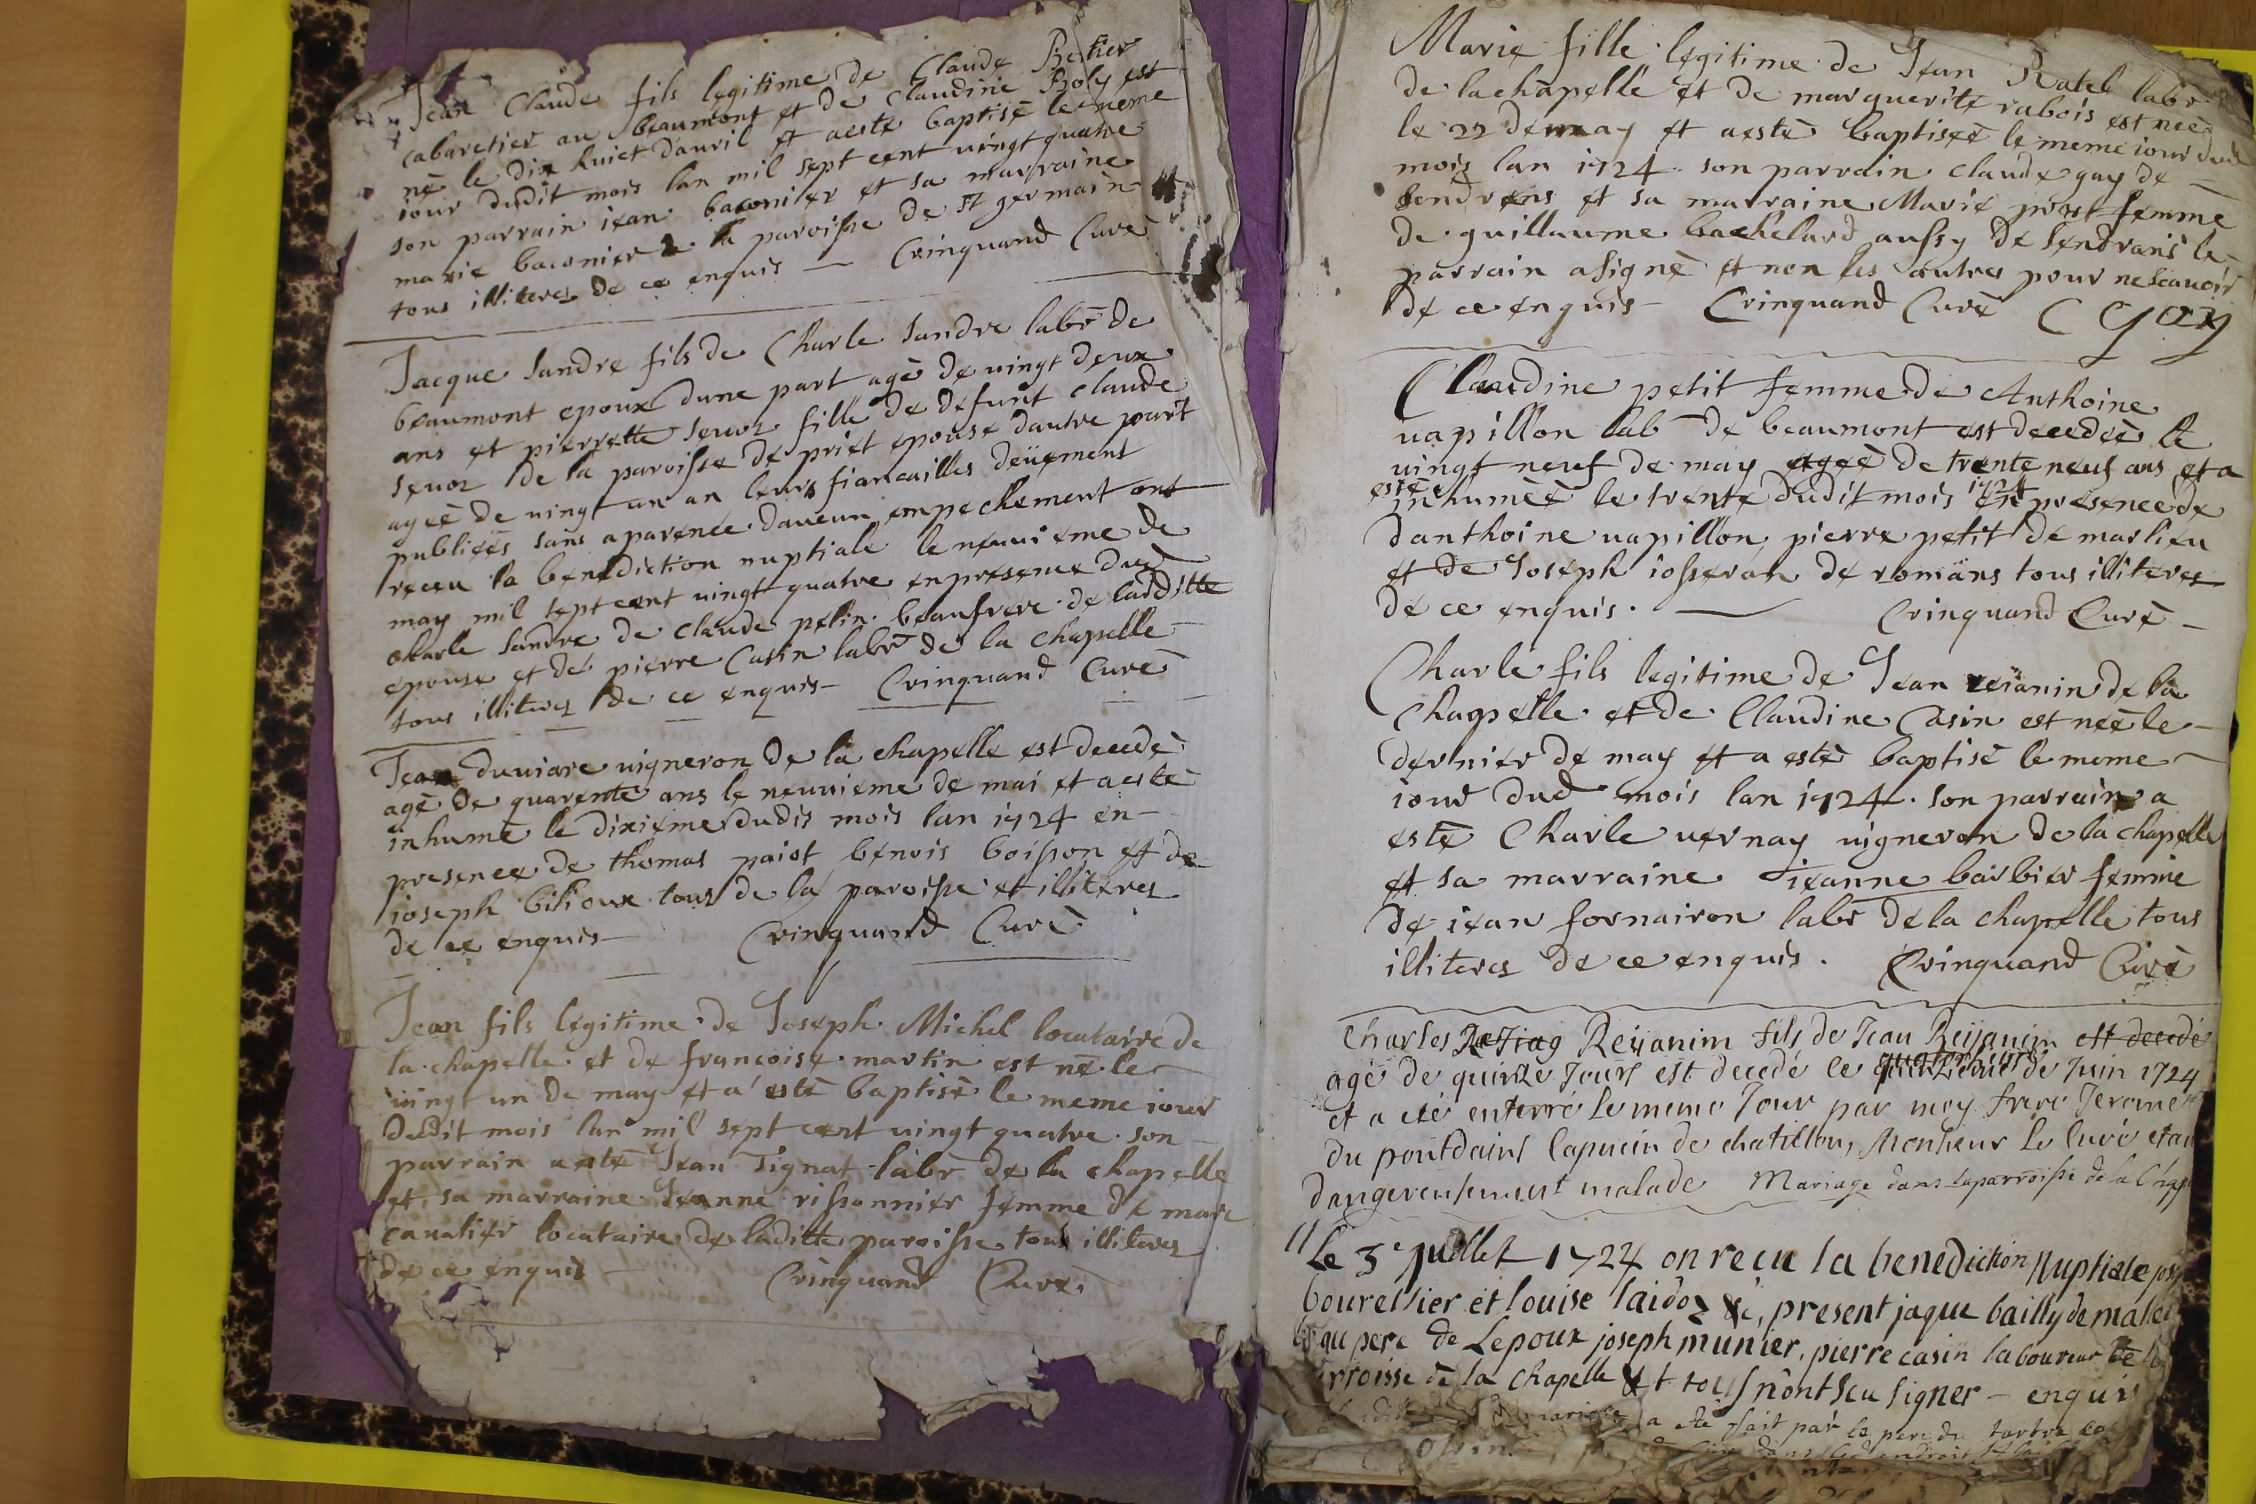 Jean Claude fils legitime de Claude Bestier
cabaretier au beaumont et de Claudine Boly est
né le dix huict dauril et aesté baptisé le meme
iour dudit mois lan mil sept cent uingt quatre
son parrain iean baconier et sa marraine
marie baconier de la paroisse de st germain
tous illiteres de ce enquis — Crinquand Curé
Jacque Sandre fils de Charle Sandre labr de
beaumont epoux dune part agé de uingt deux
ans et pierrette Seuoz fille de defunt claude
Seuoz de la paroisse de priet epouse dautre part
ageé de uingt un an leurs fiancailles deüement
publieés sans aparence daucun empechement ont
receu la benediction nuptiale le neuuieme de
may mil sept cent uingt quatre en presence dud
charle Sandre de claude pelin beaufrere de laditte
epouse et de pierre Casin labr de la chapelle
tous illiteres de ce enquis — Crinquand Curé
Jean duuiare uigneron de la chapelle est decedé
agé de quarente ans le neuuieme de mai et aesté
inhumé le dixieme dudis mois lan 1724 en
presence de thomas paist benois boisson et de
ioseph bilioux tous de la paroisse et illiteres
de ce enquis — Crinquand Curé
Jean fils legitime de Joseph Michel locataire de
la chapelle et de francoise martin est né le
uingt un de may et a esté baptisé le meme iour
dudit mois lan mil sept cent uingt quatre son
parrain aesté Jean Tignat labr de la chapelle
et sa marraine Jeanne rissonnier femme de marc
caualier locataire de laditte paroisse tous illiteres
de ce enquis — Crinquand Curé
Marie fille legitime de Jean Ratel labr
de lachapelle et de marguerite rabois est neé
le 22 demay et aesté baptiseé le meme iour dud
mois lan 1724 son parrain claude gay de
Sendrens et sa marraine Marie prost femme
de guillaume bachelard aussy de Sendrans le
parrain asigné et non les autres pour nescauoir
de ce enquis — Crinquand Curé C Gay
Claudine petit femme de Anthoine
uapillon lab de beaumont est decedeé le
uingt neuf de may ageé de trente neuf ans et a
esté inhumeé le trente dudit mois 1724 en presence de
danthoine uapillon pierre petit de marlieu
et de Joseph iosseran de romans tous illiteres
de ce enquis. — Crinquand Curé —
Charle fils legitime de Jean reianin de la
Chappelle et de Claudine Casin est neé le
dernier de may et a esté baptisé le meme
iour dud mois lan 1724. Son parrain a
esté Charle uernay uigneron de la chapelle
et sa marraine ieanne barbier femme
de iean fornairon labr de la chapelle tous
illiteres de ce enquis. Crinquand Curé
Charles Reijanim fils de Jean Reijanim est decedé
agé de quinze Jours est decedé le quatorzieme de Juin 1724
et a eté enterré le meme Jour par moy frere Jerome
du pontdains Capucin de chatillon, Monsieur le Curé etan
dangereusement malade Mariage dans laparroisse de la Chapp
Le 3e juillet 1724 on recu la benediction Nuptiale
bourelsier et louise laidoz, present jaque bailly de
au pere de Lepoux joseph munier, pierre casin laboureur de la
rroisse de la chapelle et tous n'ont scu signer — enquis
mariage a eté fait par le pere du tartre